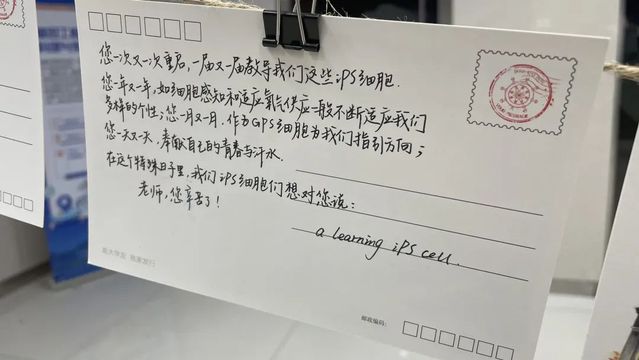 您一次又一次重启，一届又一届教导我们这些iPS细胞.
您一年又一年，如细胞感知和适应氧气供应一般不断适应我们
多样的个性；您一月又一月，作为GPS细胞为我们指引方向；
您一天又一天，奉献自己的青春与汗水.
在这个特殊日子里，我们iPS细胞们想对您说：
老师，您辛苦了！
a learning iPS cell.
邮政编码：